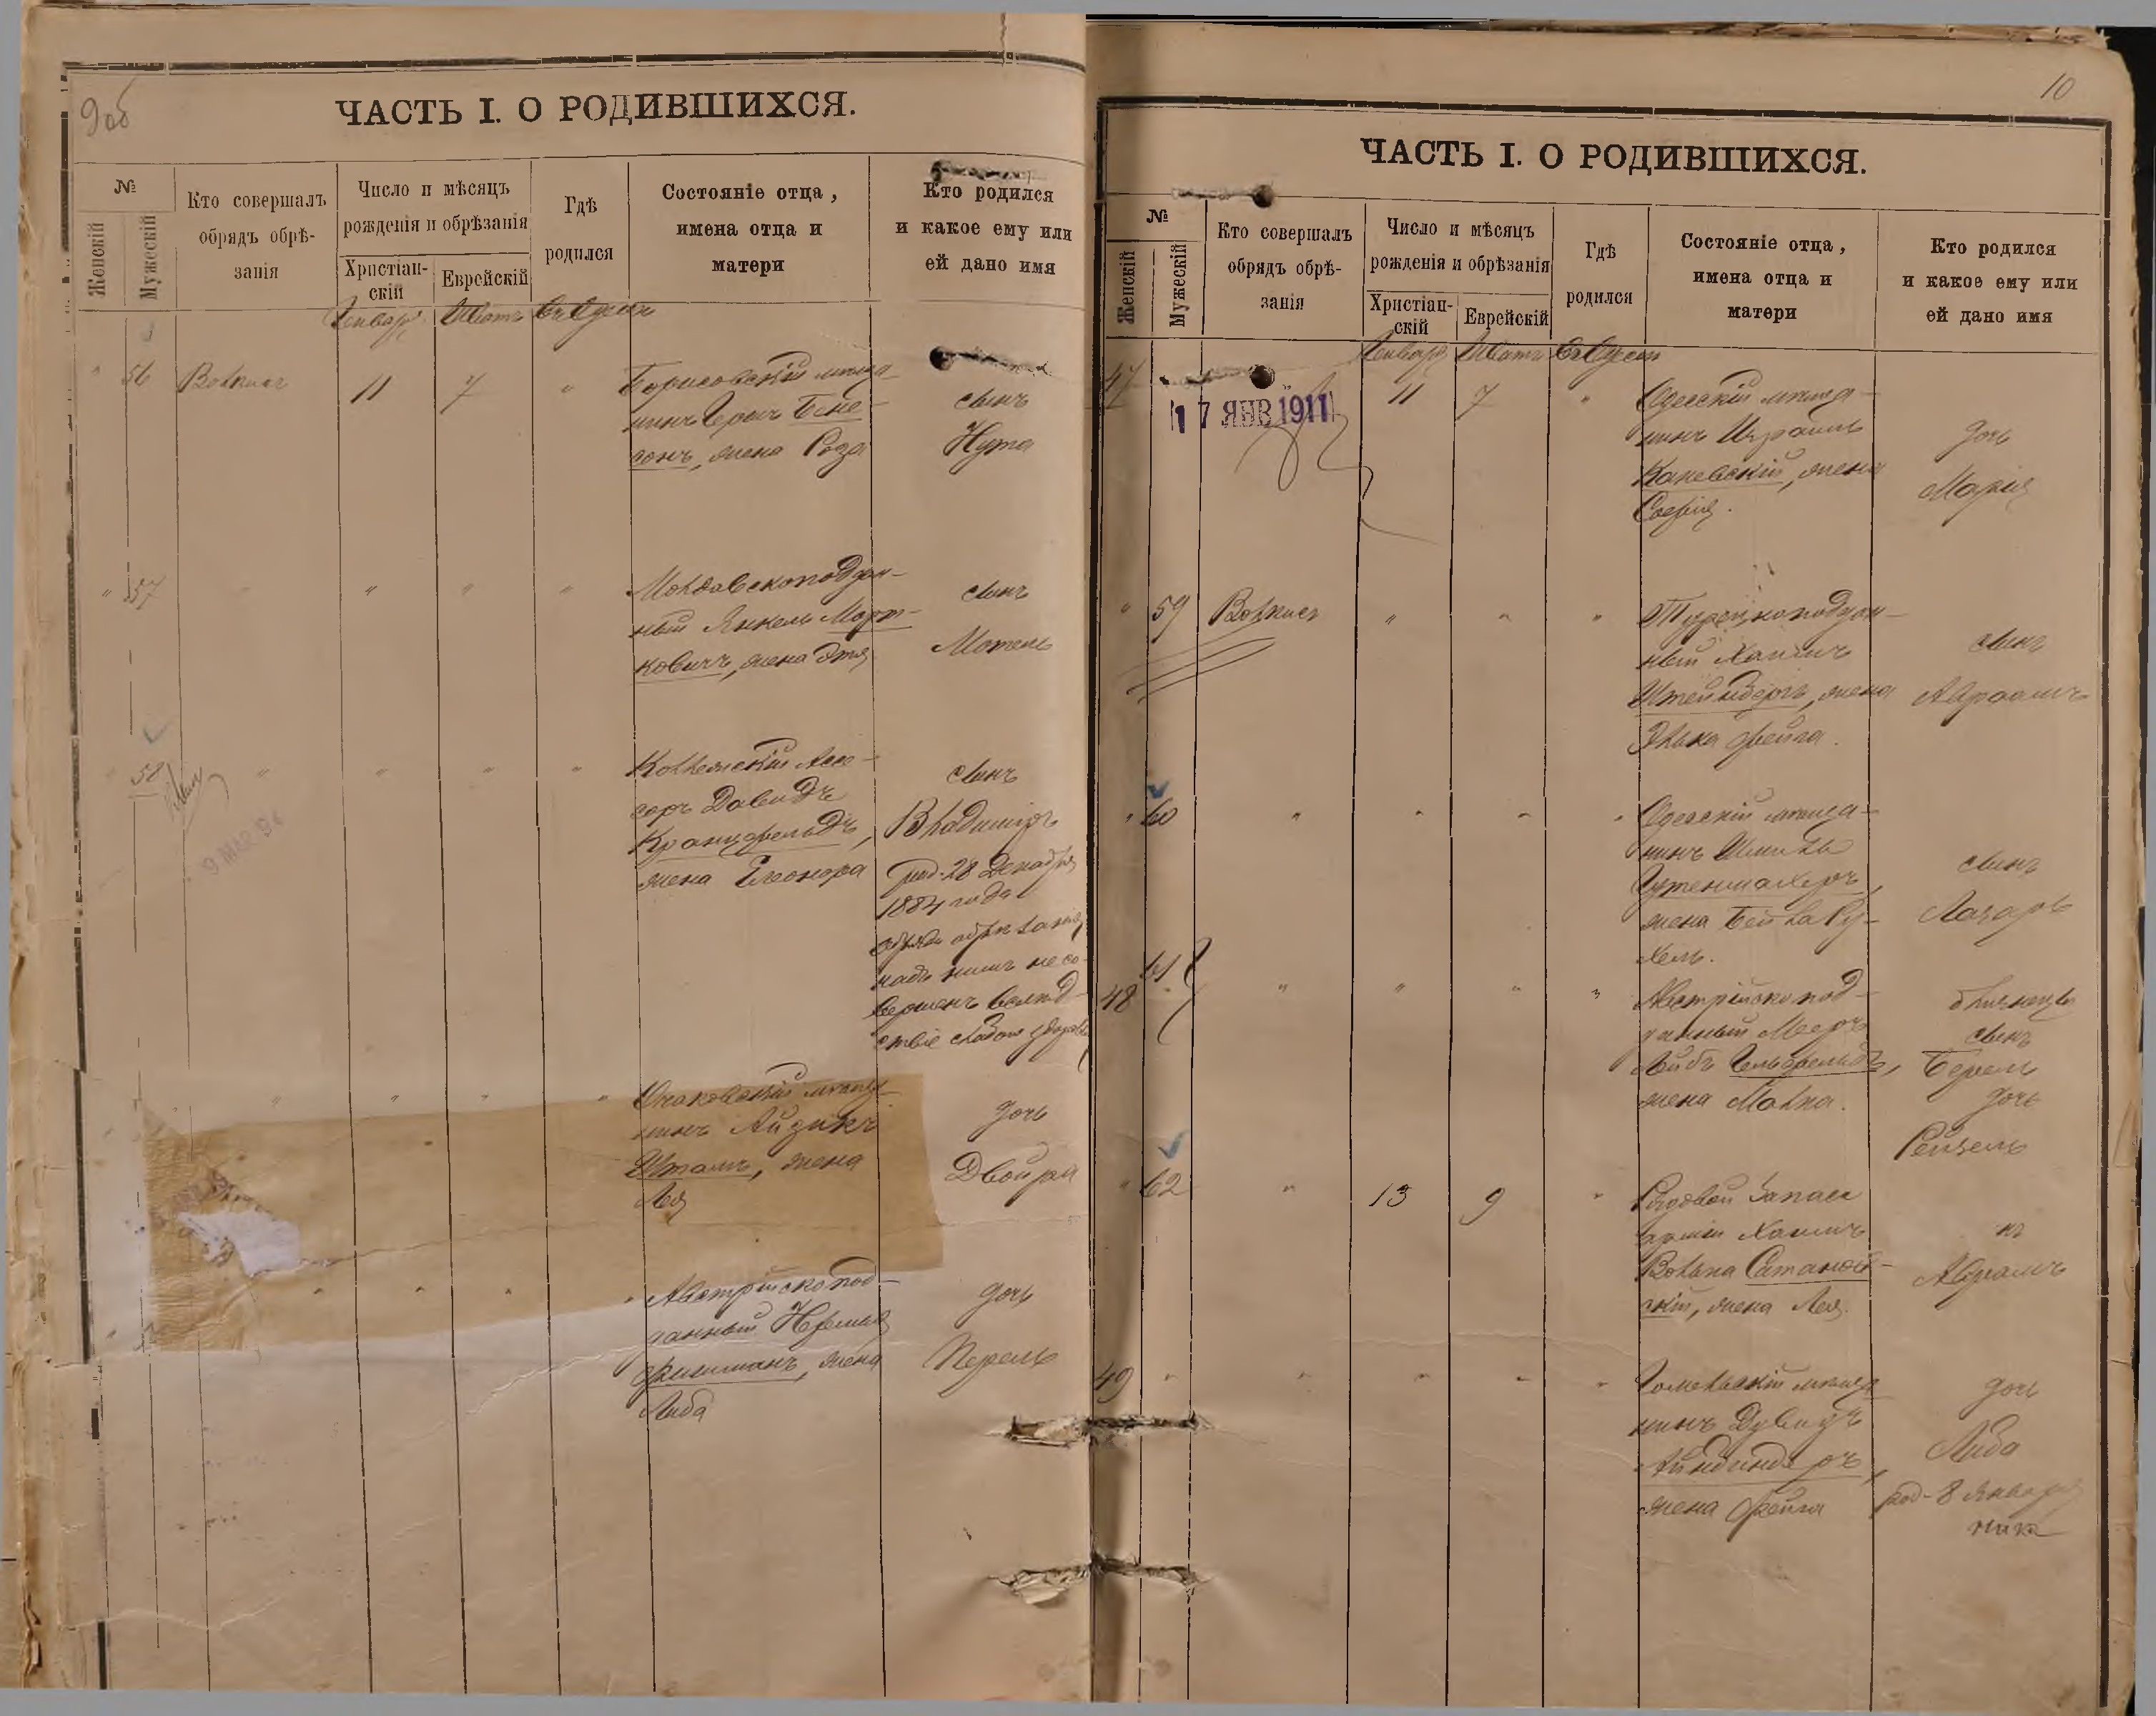 9 об
ЧАСТЬ I. О РОДИВШИХСЯ.
№
Женскій
Мужескій
Кто совершалъ
обрядъ обрѣ-
занія
Число и мѣсяцъ
рожденія и обрѣзанія
Христіан-
скій
Еврейскій
Гдѣ
родился
Состояніе отца,
имена отца и
матери
Кто родился
и какое ему или
ей дано имя
Январ Шватъ
" 56 11 7 "
Борисовскій мѣща-
нинъ Герш Бене-
сонъ, жена Роза
сынъ
Нута
" 57 " " " "
Молдавскоподдан-
ный ЯнкельМорт-
ковичъ, жена Этя
сынъ
Мотель
58 " " " "
Коллежскій Асе-
соръ Давидъ
Кранцфельдъ,
жена Елеонора
сынъ
Владиміръ
род. 28 Декабря
1884 года
обрядъ обрѣзанія
надъ нимъ не со-
вершенъ вслѣд-
ствіе слабого здоровья
" " " "
Очаковскій мѣща-
нинъ Айзикъ
Штамъ, жена
Лея
дочь
Двойра
" " " "
Австрійскопод-
данный
Фишманъ, жена
Люба
дочь
Перель
10
ЧАСТЬ I. О РОДИВШИХСЯ.
№
Женскій
Мужескій
Кто совершалъ
обрядъ обрѣ-
занія
Число и мѣсяцъ
рожденія и обрѣзанія
Христіан-
скій
Еврейскій
Гдѣ
родился
Состояніе отца,
имена отца и
матери
Кто родился
и какое ему или
ей дано имя
Январ Шватъ
47 11 7 "
17 ЯНВ 1911
Одесскій мѣща-
нинъ Израиль
Каневскій, жена
Софія.
дочь
Марія
" 59 " " "
Турецкоподдан-
ный Хаимъ
Штейнбергъ, жена
Элька Фейга.
сынъ
Авраамъ
" 60 " " " "
Одесскій мѣща-
нинъ Шмиль
Гутеншахеръ,
жена Бейла Ру-
хель.
сынъ
Лазарь
61
48 " " " "
Австрійскопод-
данный Мееръ
Лейбъ Гельфельдъ,
жена Малка.
близнецы
сынъ
Берель
дочь
Рейзель
" 62 " 13 9 "
Рядовой запаса
арміи Хаимъ
Волька Сатанов-
скій, жена Лея.
Авраамъ
49 " " " " "
Гомельскій мѣща-
нинъ Дувидъ
Айнбиндеръ,
жена Фейга
дочь
Люба
род. 8 Января